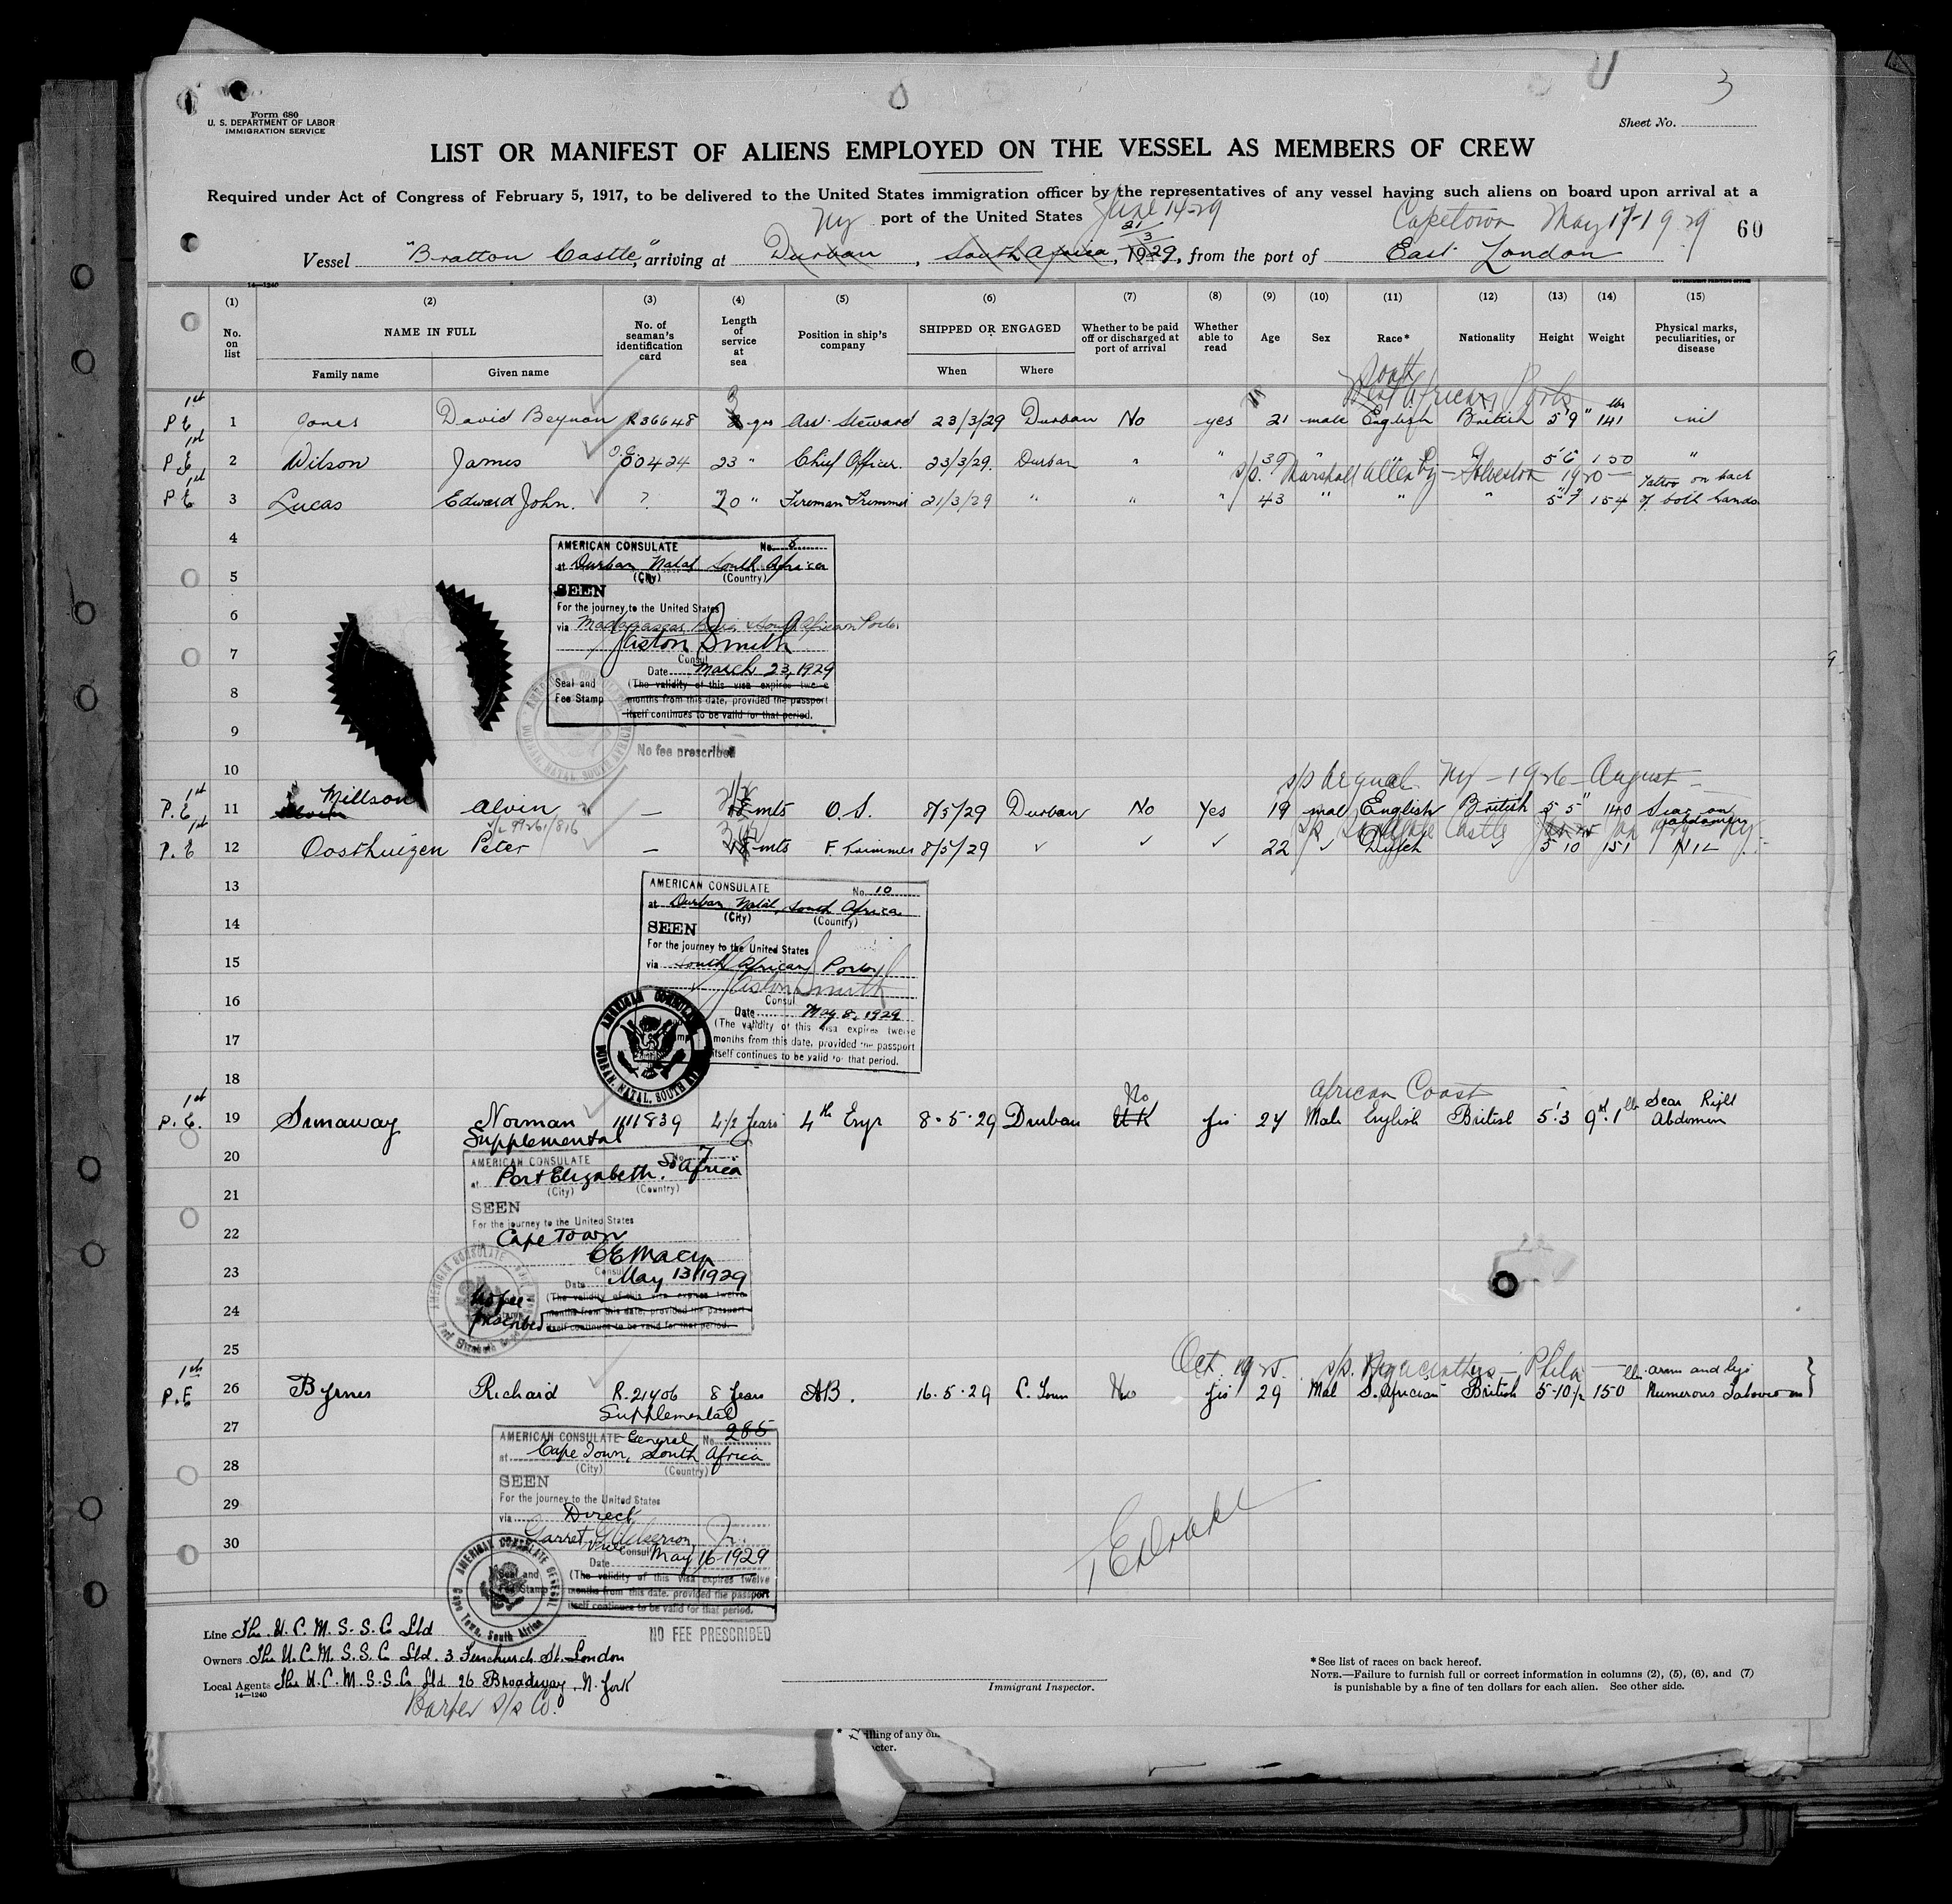 3
Form 680
U. S. DEPARTMENT OF LABOR
IMMIGRATION SERVICE
Sheet No.
LIST OR MANIFEST OF ALIENS EMPLOYED ON THE VESSEL AS MEMBERS OF CREW
Required under Act of Congress of February 5, 1917, to be delivered to the United States immigration officer by the representatives of any vessel having such aliens on board upon arrival at a
port of the United States
Ny June 14-29 Capetown May 17-1929 60
Vessel "Bratton Castle", arriving at Durban, South Africa, 21/3 1929, from the port of East London
14-1240
(1) (2) (3) (4) (5) (6) (7) (8) (9) (10) (11) (12) (13) (14) (15)
No. on list
NAME IN FULL
Family name
Given name
No. of seaman's identification card
Length of service at sea
Position in ship's company
SHIPPED OR ENGAGED
When
Where
Whether to be paid off or discharged at port of arrival
Whether able to read
Age
Sex
Race*
Nationality
Height
Weight
Physical marks, peculiarities, or disease
South African Ports
1st
P E 1 Jones David Beynon R36648 3 yrs Asst. Steward 23/3/29 Durban No yes 21 male English British 5'9" 141 lbs nil
1st
P E 2 Wilson James 00424 23 " Chief Officer. 23/3/29. Durban " " 39 " " " 5'6 150 "
s/s. Marshall Allenby - Galveston 1920
1st
P E 3 Lucas Edward John. ? 20 " Fireman Trimmer 21/3/29 " " " 43 " " " 5"7 154 Tattoo on back of both hands
4
AMERICAN CONSULATE No. 5
at Durban Natal South Africa
(City) (Country)
5
SEEN
For the journey to the United States
6
via Madagascar, Beira, South African Ports
Gaston Smith
7
Consul
Date March 23, 1929
Seal and Fee Stamp
(The validity of this visa expires twelve
months from this date, provided the passport
itself continues to be valid for that period.
8
9
No fee prescribed
10
Ny - 1926 - August
1st
P.E 11 Millson Alvin — mts O.S. 8/5/29 Durban No Yes 19 mal English British 5 5" 140 Scar on abdomen
1st
P.E 12 Oosthuizen Peter — mts F. Trimmer 8/5/29 ✓ ✓ ✓ 22 ✓ Dutch ✓ 5 10 151 NIL
13
AMERICAN CONSULATE No. 10
at Durban Natal, South Africa
(City) (Country)
14
SEEN
For the journey to the United States
15
via South African Ports
Gaston Smith
16
Consul
Date May 8, 1929
(The validity of this visa expires twelve
17
months from this date, provided the passport
itself continues to be valid for that period.
AMERICAN CONSULATE DURBAN, NATAL, SOUTH AFRICA
18
African Coast
1st No
P.E. 19 Simaway Norman 1111839 4½ Years 4th Engr 8-5-29 Durban U K Yes 24 Male English British 5'.3 9st.1lb Scar Right Abdomen
Supplemental
20
AMERICAN CONSULATE No. 7
at Port Elizabeth. So Africa
(City) (Country)
21
SEEN
For the journey to the United States
22
Cape Town
C E Macy
23
Consul
Date May 13 1929
24
No fee prescribed
(The validity of this visa expires twelve
months from this date, provided the passport
itself continues to be valid for that period.
25
Oct. 1925. s/s. Hyacinthus - Phila
1st
P.E 26 Byrnes Richard R.21406 8 Years AB. 16-5-29 C. Town No Yes 29 Mal S. African British 5-10½ 150 lbs Numerous Tattoos on arms and legs
Supplemental
27
AMERICAN CONSULATE General No. 285
at Cape Town, South Africa
(City) (Country)
28
SEEN
29
For the journey to the United States
via Direct
30
Vice Consul
Date May 16-1929
Seal and Fee Stamp
(The validity of this visa expires twelve
months from this date, provided the passport
itself continues to be valid for that period.
AMERICAN CONSULATE GENERAL Cape Town, South Africa
NO FEE PRESCRIBED
Line The U. C. M. S. S. C Ltd
Owners The U. C. M. S. S. C Ltd. 3 Fenchurch St. London
Local Agents The U. C. M. S. S. Co Ltd 26 Broadway, N. York
14-1240
Barber s/s Co.
Immigrant Inspector.
*See list of races on back hereof.
NOTE.—Failure to furnish full or correct information in columns (2), (5), (6), and (7)
is punishable by a fine of ten dollars for each alien. See other side.